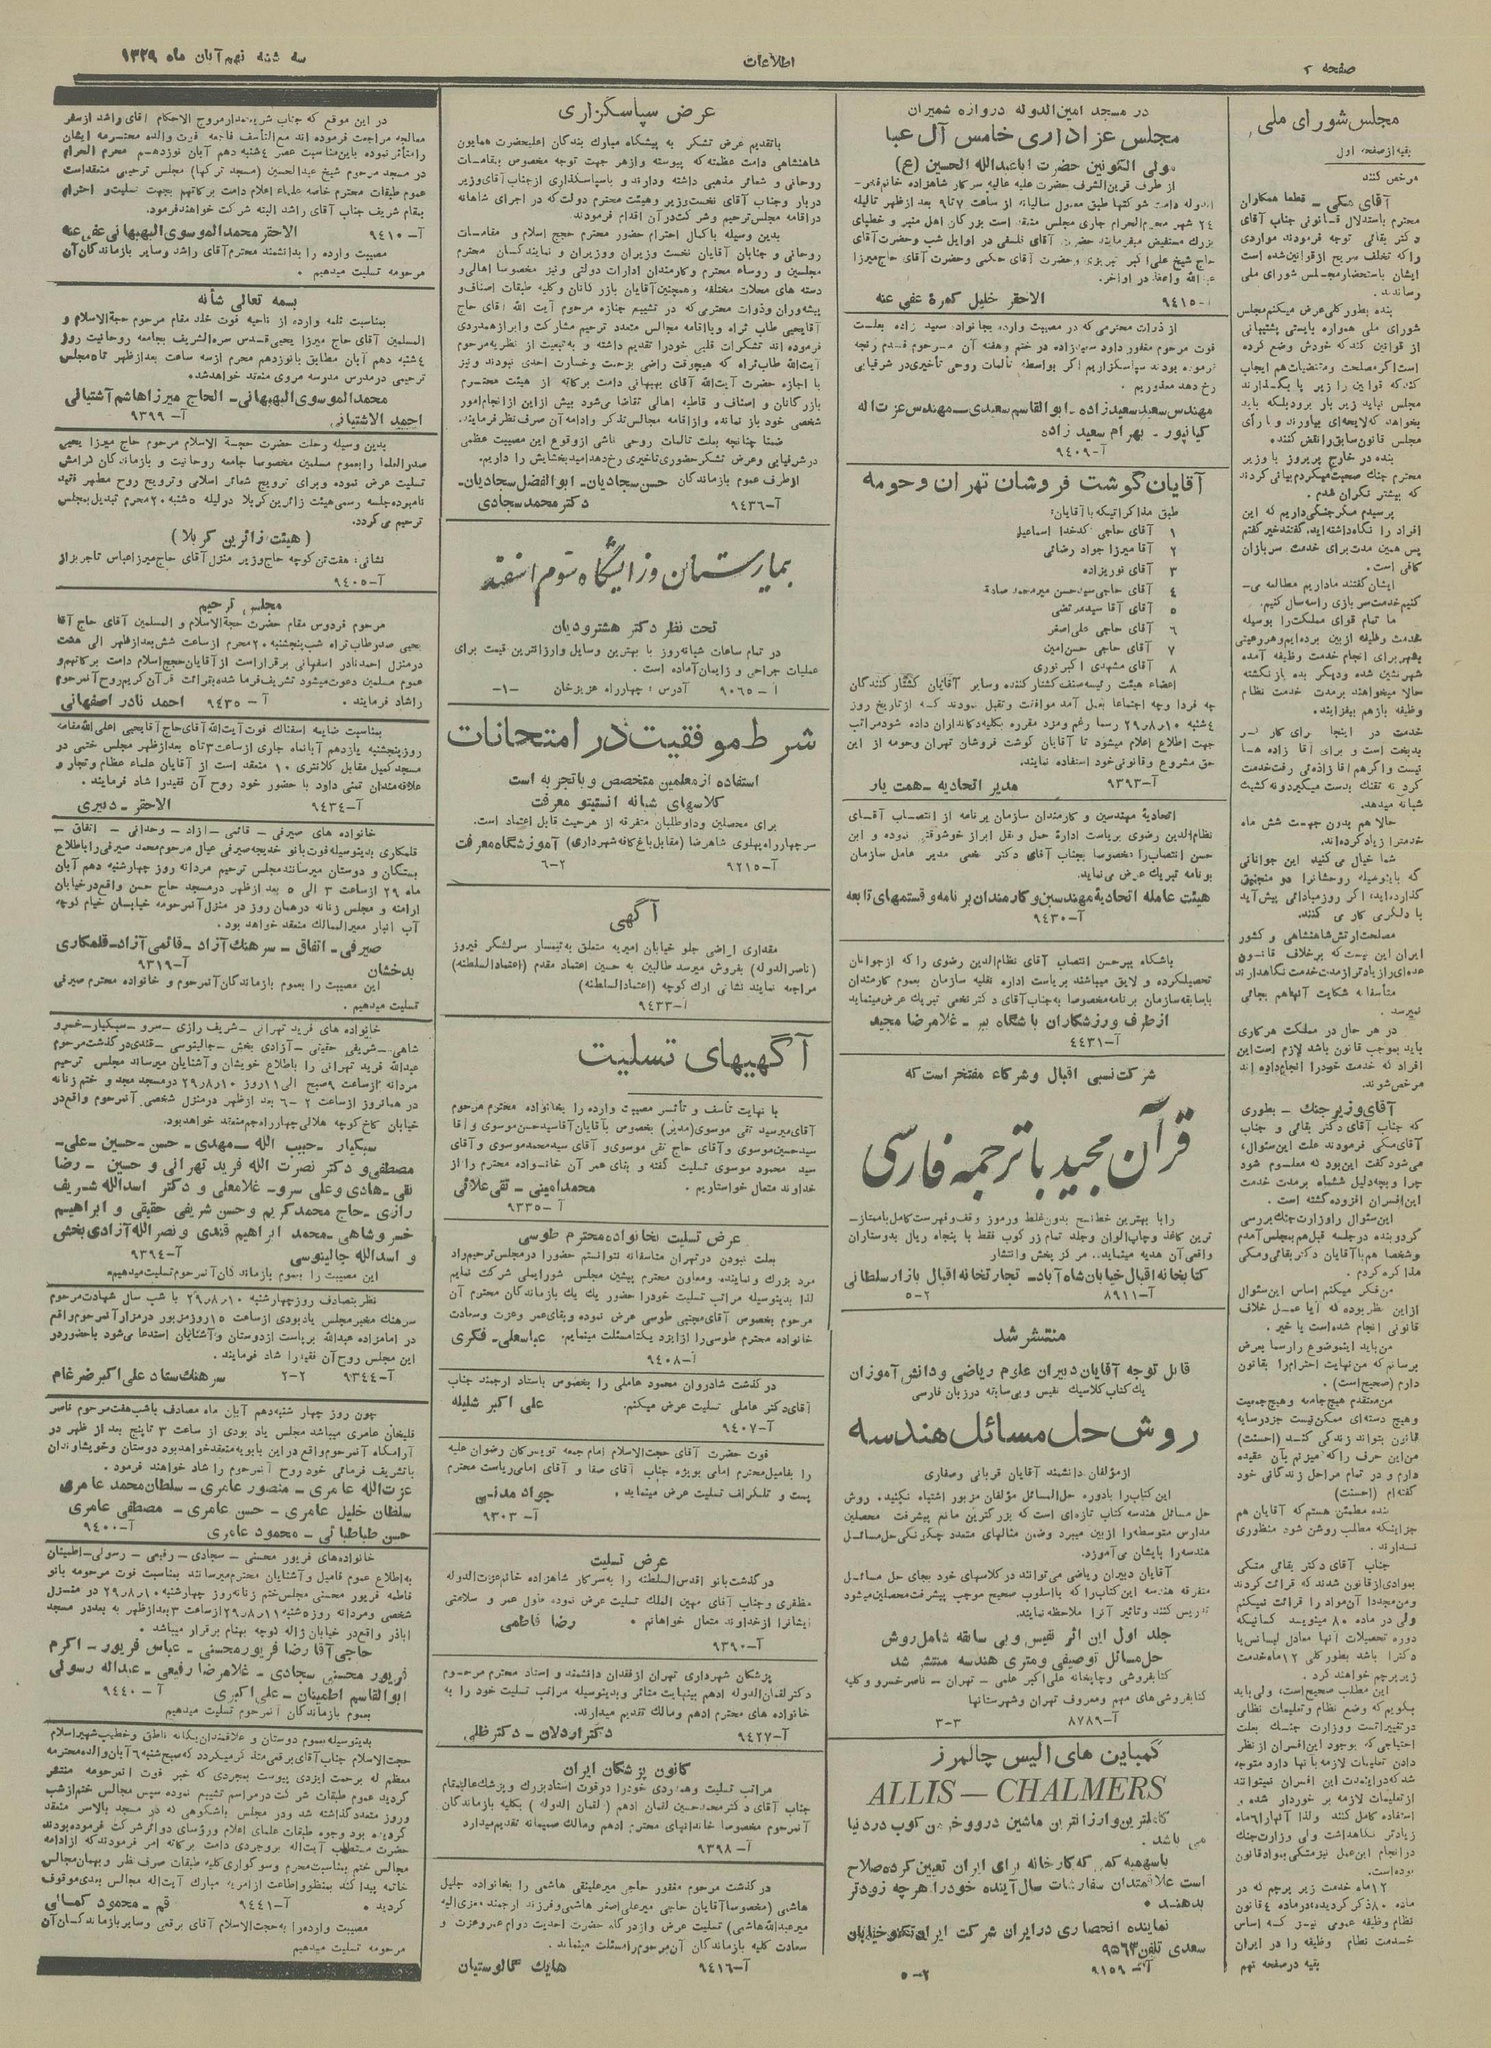 صفحه ۲
اطلاعات
سه شنبه نهم آبان ماه ۱۳۲۹
مجلس شورای ملی
بقیه از صفحه اول
مرخص کنند
آقای مکی - قطعا همکاران
محترم باستدلال قانونی جناب آقای
دکتر بقائی توجه فرمودند مواردی
را که تخلف صریح از قوانین شده است
ایشان باستحضار مجلس شورای ملی
رساندند.
بنده بطور کلی عرض میکنم مجلس
شورای ملی همواره بایستی پشتیبانی
از قوانین کند که خودش وضع کرده
است اگر مصلحت و مقتضیات هم ایجاب
کند که قوانین را زیر پا بگذارند
مجلس نباید زیر بار برود بلکه باید
بخواهد که لایحه‌ای بیاورند و با رأی
مجلس قانون سابق را نقض کنند.
بنده در خارج پریروز با وزیر
محترم جنگ صحبت میکردم بیانی کردند
که بیشتر نگران شدم.
پرسیدم مگر جنگی داریم که این
افراد را نگاه داشته‌اید، گفتند خیر گفتم
پس همین مدت برای خدمت سربازان
کافی است.
ایشان گفتند ما داریم مطالعه می-
کنیم خدمت سربازی را سه سال کنیم.
ما تمام قوای مملکت را بوسیله
خدمت وظیفه از بین برده‌ایم و هر رعیتی
بشهر برای انجام خدمت وظیفه آمده
شهرنشین شده و دیگر بده بازنگشته
حالا میخواهند بر مدت خدمت نظام
وظیفه باز هم بیفزایند.
نیست و اگر هم آقازاده‌ئی رفت خدمت
کرد نه تفنگ بدست میگیرد و نه کشیک
شبانه میدهد.
حالا هم بدون جهت شش ماه
خدمت را زیاد کرده‌اند.
شما خیال می کنید این جوانانی
که باینوسیله روحشانرا در منجنیق
گذارده‌اید، اگر روز مبادائی پیش آید
با دلگرمی کار می کنند.
مصلحت ارتش شاهنشاهی و کشور
ایران این نیست که برخلاف قانون
عده‌ای را زیادتر از مدت خدمت نگاهدارند
متأسفانه شکایت آنها هم بجائی
نمیرسد.
در هر حال در مملکت هر کاری
باید بموجب قانون باشد لازم است این
افراد که خدمت خود را انجام داده اند
مرخص شوند.
آقای وزیر جنگ - بطوری
که جناب آقای دکتر بقائی و جناب
آقای مکی فرمودند علت این سئوال،
می‌شود گفت این بود که معلوم شود
چرا و بچه دلیل ششماه بر مدت خدمت
این افسران افزوده گشته است.
این سئوال را وزارت جنگ بررسی
کرد و بنده در جلسه قبل هم بمجلس آمدم
و شخصا هم با آقایان دکتر بقائی و مکی
مذاکره کردم.
من فکر میکنم اساس این سئوال
از این نظر بوده که آیا عمل خلاف
قانونی انجام شده است یا خیر.
من باید این موضوع را رسما بعرض
برسانم که من نهایت احترام را بقانون
دارم (صحیح است).
من معتقدم هیچ جامعه و هیچ جمعیت
و هیچ دسته‌ای ممکن نیست جز در سایه
قانون بتواند زندگی کند (احسنت)
من این حرف را که میزنم بآن عقیده
دارم و در تمام مراحل زندگانی خود
گفته‌ام (احسنت)
بنده مطمئن هستم که آقایان هم
جز اینکه مطلب روشن شود منظوری
ندارند.
جناب آقای دکتر بقائی متکی
بموادی از قانون شدند که قرائت کردند
و من مجددا آن مواد را قرائت نمیکنم
ولی در ماده ۸۰ مینویسد کسانیکه
دوره تحصیلات آنها معادل لیسانس یا
دکترا باشد بطور کلی ۱۲ ماه خدمت
زیر پرچم خواهند کرد.
این مطلب صحیح است، ولی باید
بگویم که وضع نظام و تعلیمات نظامی
در تغییر است و وزارت جنگ بعلت
احتیاجی که بوجود این افسران از نظر
دادن تعلیمات لازمه بآنها دارد متوجه
شد که در این مدت این افسران نمیتوانند
از تعلیمات لازمه برخوردار شده و
استفاده کامل کنند ولذا آنها را ۶ ماه
زیادتر نگاهداشت ولی وزارت جنگ
در انجام این عمل نیز متکی بمواد قانون
بوده است.
۱۲ ماه خدمت زیر پرچم که در
ماده ۸۰ ذکر گردیده، در ماده ۴ قانون
نظام وظیفه عمومی نیز که اساس
خدمت نظام وظیفه را در ایران
بقیه در صفحه نهم
در مسجد امین‌الدوله دروازه شمیران
مجلس عزاداری خامس آل عبا
مولی الکونین حضرت اباعبدالله الحسین (ع)
۲۴ شهر محرم الحرام جاری مجلس منعقد است بزرگان اهل منبر و خطبای
بزرگ مستفیض میفرمایند حضرت آقای فلسفی در اوایل شب و حضرت آقای
الاحقر خلیل کمره عفی عنه
آ-۹۴۱۵
از ذوات محترمی که در مصیبت وارده بخانواده سعید زاده بعلت
فوت مرحوم مغفور داود سعیدزاده در ختم و هفته آن مرحوم قدم رنجه
فرموده بودند سپاسگزاریم اگر بواسطه تألمات روحی تأخیری در شرفیابی
رخ دهد معذوریم.
مهندس سعید سعیدزاده - ابوالقاسم سعیدی - مهندس عزت‌اله
کیانپور - بهرام سعید زاده
آ-۹۴۰۹
آقایان گوشت فروشان تهران و حومه
طبق مذاکراتیکه با آقایان:
۱ آقای حاجی کدخدا اسماعیل
۲ آقا میرزا جواد رضائی
۳ آقای نوریزاده
۴ آقای حاجی سید حسن میرمحمد صادق
۵ آقای آقا سید مرتضی
۶ آقای حاجی علی اصغر
۷ آقای حاجی حسن امین
۸ آقای مشهدی اکبر نوری
اعضاء هیئت رئیسه صنف کشتار کننده و سایر آقایان کشتار کنندگان
چه فردا وچه اجتماعا بعمل آمد موافقت و تقبل نمودند که از تاریخ روز
۴شنبه ۲۹٫۸٫۱۰ رسما رغم و مزد مقرره بکلیه دکانداران داده شود مراتب
جهت اطلاع اعلام میشود تا آقایان گوشت فروشان تهران و حومه از این
حق مشروع و قانونی خود استفاده نمایند.
آ-۹۳۹۳ مدیر اتحادیه - همت یار
اتحادیه مهندسین و کارمندان سازمان برنامه از انتصاب آقای
نظام‌الدین رضوی بریاست اداره حمل و نقل ابراز خوشوقتی نموده و این
حسن انتصاب را مخصوصا بجناب آقای دکتر نخعی مدیر عامل سازمان
برنامه تبریک عرض می‌نماید.
هیئت عامله اتحادیه مهندسین و کارمندان برنامه و قسمتهای تابعه
آ-۹۴۳۰
باشگاه ببر حسن انتصاب آقای نظام‌الدین رضوی را که از جوانان
تحصیلکرده و لایق میباشند بریاست اداره نقلیه سازمان بعموم کارمندان
باسابقه سازمان برنامه مخصوصا به جناب آقای دکتر نخعی تبریک عرض مینماید
از طرف ورزشکاران باشگاه ببر - غلامرضا مجید
آ-۴۴۳۱
شرکت نسبی اقبال و شرکاء مفتخر است که
قرآن مجید با ترجمه فارسی
را با بهترین خط نسخ بدون غلط و رموز وقف و فهرست کامل باممتاز-
ترین کاغذ و چاپ الوان و جلد تمام زرکوب فقط با پنجاه ریال بدوستاران
واقعی آن هدیه مینماید.. مرکز پخش و انتشار
کتابخانه اقبال خیابان شاه آباد - تجارتخانه اقبال بازار سلطانی
آ-۸۹۱۱ ۲-۵
منتشر شد
قابل توجه آقایان دبیران علوم ریاضی و دانش آموزان
یک کتاب کلاسیک نفیس و بی‌سابقه در زبان فارسی
روش حل مسائل هندسه
از مؤلفان دانشمند آقایان قربانی و صفاری
این کتاب را با دوره حل‌المسائل مؤلفان مزبور اشتباه نکنید. روش
حل مسائل هندسه کتاب تازه‌ای است که بزرگترین مانع پیشرفت محصلین
مدارس متوسطه را از بین میبرد و ضمن مثالهای متعدد چگونگی حل مسائل
هندسه را بایشان می‌آموزد.
آقایان دبیران ریاضی می‌توانند در کلاسهای خود بجای حل مسائل
متفرقه هندسه این کتاب را که با اسلوب صحیح موجب پیشرفت محصلین میشود
تدریس کنند و تاثیر آنرا ملاحظه نمایند.
جلد اول این اثر نفیس و بی سابقه شامل روش
حل مسائل توصیفی و متری هندسه منتشر شد
کتابفروشی و چاپخانه علی‌اکبر علمی - تهران - ناصرخسرو و کلیه
کتابفروشی های مهم و معروف تهران و شهرستانها
آ-۸۷۸۹ ۳-۳
کمباین های الیس چالمرز
ALLIS — CHALMERS
کاملترین و ارزانترین ماشین درو و خرمن کوب در دنیا
می باشد.
با سهمیه کمی که کارخانه برای ایران تعیین کرده صلاح
است علاقمندان سفارشات سال آینده خود را هر چه زودتر
بدهند.
نماینده انحصاری در ایران شرکت ایران تکنو خیابان
سعدی تلفن ۹۵۶۳
آ-۹۱۵۹ ۲-۵
عرض سپاسگزاری
با تقدیم عرض تشکر به پیشگاه مبارک بندگان اعلیحضرت همایون
شاهنشاهی دامت عظمته که پیوسته و از هر جهت توجه مخصوص بمقامات
روحانی و شعائر مذهبی داشته و دارند و با سپاسگذاری از جناب آقای وزیر
دربار و جناب آقای نخست وزیر و هیئت محترم دولت که در اجرای شاهانه
در اقامه مجلس ترحیم و شرکت در آن اقدام فرمودند
بدین وسیله با کمال احترام حضور محترم حجج اسلام و مقامات
روحانی و جنابان آقایان نخست وزیران و وزیران و نمایندگان محترم
مجلسین و روساء محترم و کارمندان ادارات دولتی و نیز مخصوصا اهالی و
دسته های محلات مختلفه و همچنین آقایان بازرگانان و کلیه طبقات اصناف و
پیشه‌وران و ذوات محترمی که در تشییع جنازه مرحوم آیت الله آقای حاج
آقا یحیی طاب ثراه و یا اقامه مجالس متعدد ترحیم مشارکت و ابراز همدردی
فرموده اند تشکرات قلبی خود را تقدیم داشته و به تبعیت از نظریه مرحوم
آیت‌الله طاب ثراه که هیچوقت راضی بزحمت و خسارت احدی نبودند و نیز
با اجازه حضرت آیت‌الله آقای بهبهانی دامت برکاته از هیئت محترم
بازرگانان و اصناف و قاطبه اهالی تقاضا می‌شود بیش از این از انجام امور
شخصی خود باز نمانده و از اقامه مجالس تذکر و ادامه آن صرف نظر فرمایند.
ضمنا چنانچه بعلت تالمات روحی ناشی از وقوع این مصیبت عظمی
در شرفیابی و عرض تشکر حضوری تاخیری رخ دهد امید بخشایش را داریم.
از طرف عموم بازماندگان حسن سجادیان - ابوالفضل سجادیان-
آ-۹۴۳۶ دکتر محمد سجادی
بیمارستان و زایشگاه سوم اسفند
تحت نظر دکتر هشترودیان
در تمام ساعات شبانه‌روز با بهترین وسایل و ارزانترین قیمت برای
عملیات جراحی و زایمان آماده است.
آ-۹۰۶۵ آدرس: چهارراه عزیزخان -۱-
شرط موفقیت در امتحانات
استفاده از معلمین متخصص و با تجربه است
کلاسهای شبانه انستیتو معرفت
برای محصلین و داوطلبان متفرقه از هر حیث قابل اعتماد است.
سرچهارراه پهلوی شاهرضا (مقابل باغ کافه شهرداری) آموزشگاه معرفت
آ-۹۲۱۵ ۲-۶
آگهی
مقداری اراضی جلو خیابان امیریه متعلق به تیمسار سرلشگر فیروز
(ناصرالدوله) بفروش میرسد طالبین به حسین اعتماد مقدم (اعتمادالسلطنه)
مراجعه نمایند نشانی ارک کوچه (اعتمادالسلطنه)
آ-۹۴۳۳
آگهیهای تسلیت
با نهایت تاسف و تأثر مصیبت وارده را بخانواده محترم مرحوم
آقای میرسید تقی موسوی (مدیر) بخصوص با آقایان آقا سید حسن موسوی و آقا
سید حسین موسوی و آقای حاج تقی موسوی و آقای سید محمد موسوی و آقای
سید محمود موسوی تسلیت گفته و بقای عمر آن خانواده محترم را از
خداوند متعال خواستاریم. محمد امینی - تقی علائی
آ-۹۳۳۵
عرض تسلیت بخانواده محترم طوسی
بعلت نبودن در تهران متاسفانه نتوانستم حضورا در مجلس ترحیم راد
مرد بزرگ و نماینده و معاون محترم پیشین مجلس شورایملی شرکت نمایم
لذا بدینوسیله مراتب تسلیت خود را حضور یک یک بازماندگان محترم آن
مرحوم بخصوص آقای مجتبی طوسی عرض نموده و بقای عمر و عزت و سعادت
خانواده محترم طوسی را از ایزد یکتا مسئلت مینمایم. عباسعلی - فکری
آ-۹۴۰۸
در گذشت شادروان محمود عاملی را بخصوص باستاد ارجمند جناب
آقای دکتر عاملی تسلیت عرض میکنم. علی اکبر شلیله
آ-۹۴۰۷
فوت حضرت آقای حجت‌الاسلام امام جمعه تویسرکان رضوان علیه
را بفامیل محترم امامی بویژه جناب آقای صفا و آقای امامی ریاست محترم
پست و تلگراف تسلیت عرض مینماید. جواد مدنی
آ-۹۳۰۳
عرض تسلیت
در گذشت بانو اقدس‌السلطنه را به سرکار شاهزاده خانم عزت‌الدوله
مظفری و جناب آقای مهین الملک تسلیت عرض نموده طول عمر و سلامتی
ایشانرا از خداوند متعال خواهانم. رضا فاطمی
آ-۹۳۹۰
پزشکان شهرداری تهران از فقدان دانشمند و استاد محترم مرحوم
دکتر لقمان‌الدوله ادهم بینهایت متاثر و بدینوسیله مراتب تسلیت خود را به
خانواده های محترم ادهم و مالک تقدیم میدارند.
آ-۹۴۲۷ دکتر اردلان - دکتر ظلی
کانون پزشکان ایران
مراتب تسلیت و همدردی خود را در فوت استاد بزرگ و پزشک عالیمقام
جناب آقای دکتر محمد حسین لقمان ادهم (لقمان الدوله) بکلیه بازماندگان
آنمرحوم مخصوصا خاندانهای محترم ادهم و مالک صمیمانه تقدیم میدارد
آ-۹۳۹۸
در گذشت مرحوم مغفور حاجی میرعلینقی هاشمی را بخانواده جلیل
هاشمی (مخصوصا آقایان حاجی میرعلی اصغر هاشمی و فرزند ارجمند معزی‌الیه
میر عبدالله هاشمی) تسلیت عرض و از درگاه حضرت احدیت دوام عمر و عزت و
سعادت کلیه بازماندگان آن مرحوم را مسئلت مینماید.
آ-۹۴۱۶ هایک گالوستیان
در این موقع که جناب شریعتمدار مروج الاحکام آقای راشد از سفر
معالجه مراجعت فرموده اند مع‌التأسف فاجعه فوت والده محترمه ایشان
را متأثر نموده باین مناسبت عصر ۴شنبه دهم آبان نوزدهم محرم الحرام
در مسجد مرحوم شیخ عبدالحسین (مسجد ترکها) مجلس ترحیمی منعقد است
عموم طبقات محترم خاصه علماء اعلام دامت برکاتهم بجهت تسلیت و احترام
بمقام شریف جناب آقای راشد البته شرکت خواهند فرمود.
آ-۹۴۱۰ الاحقر محمد الموسوی البهبهانی عفی عنه
مصیبت وارده را بدانشمند محترم آقای راشد و سایر بازماندگان آن
مرحومه تسلیت میدهیم.
بسمه تعالی شأنه
بمناسبت ثلمه وارده از ناحیه فوت خلد مقام مرحوم حجة‌الاسلام و
المسلمین آقای حاج میرزا یحیی قدس سره‌الشریف بجامعه روحانیت روز
۴شنبه دهم آبان مطابق با نوزدهم محرم از سه ساعت بعد از ظهر تا ۵ مجلس
ترحیمی در مدرس مدرسه مروی منعقد خواهد شد.
محمد الموسوی البهبهانی - الحاج میرزا هاشم آشتیانی
احمد الاشتیانی آ-۹۳۹۹
بدین وسیله رحلت حضرت حجة الاسلام مرحوم حاج میرزا یحیی
صدرالعلما را بعموم مسلمین مخصوصا جامعه روحانیت و بازماندگان گرامش
تسلیت عرض نموده و برای ترویج شعائر اسلامی و ترویح روح مطهر فقید
نامبرده جلسه رسمی هیئت زائرین کربلا در لیله ۵شنبه ۲۰ محرم تبدیل بمجلس
ترحیم می گردد.
(هیئت زائرین کربلا)
نشانی: هفت‌تن کوچه حاج وزیر منزل آقای حاج میرزا عباس تاجر بزاز
آ-۹۴۰۵
مجلس ترحیم
مرحوم فردوس مقام حضرت حجة‌الاسلام و المسلمین آقای حاج آقا
یحیی صدر طاب ثراه شب پنجشنبه ۲۰ محرم از ساعت شش بعد از ظهر الی هشت
در منزل احمد نادر اصفهانی برقرار است از آقایان حجج اسلام دامت برکاتهم و
عموم مسلمین دعوت میشود تشریف فرما شده بقرائت قرآن کریم روح آنمرحوم
را شاد فرمایند. آ-۹۴۳۵ احمد نادر اصفهانی
بمناسبت ضایعه اسفناک فوت آیت‌الله آقای حاج آقا یحیی اعلی الله مقامه
روز پنجشنبه یازدهم آبانماه جاری از ساعت ۳ تا ۵ بعد از ظهر مجلس ختمی در
مسجد کمیل مقابل کلانتری ۱۰ منعقد است از آقایان علماء عظام و تجار و
علاقه‌مندان تمنی دارد با حضور خود روح آن فقید را شاد فرمایند.
آ-۹۴۳۴ الاحقر - دبیری
خانواده های صیرفی - قائمی - آزاد - وحدانی - اتفاق -
قلمکاری بدینوسیله فوت بانو خدیجه صیرفی عیال مرحوم محمد صیرفی را باطلاع
بستگان و دوستان میرسانند مجلس ترحیم مردانه روز چهارشنبه دهم آبان
ماه ۲۹ از ساعت ۳ الی ۵ بعد از ظهر در مسجد حاج حسن واقع در خیابان
ارامنه و مجلس زنانه در همان روز در منزل آنمرحومه خیابان خیام کوچه
آب انبار معیرالممالک منعقد خواهد بود.
صیرفی - اتفاق - سرهنگ آزاد - قائمی آزاد - قلمکاری
بدخشان آ-۹۳۱۹
این مصیبت را بعموم بازماندگان آنمرحوم و خانواده محترم صیرفی
تسلیت میدهیم.
خانواده های فرید تهرانی - شریف رازی - سرو - سبکیار - خسرو
شاهی - شریفی حقیقی - آزادی بخش - جالینوسی - قندی در گذشت مرحوم
عبدالله فرید تهرانی را باطلاع خویشان و آشنایان میرساند مجلس ترحیم
مردانه از ساعت ۹ صبح الی ۱۱ روز ۲۹٫۸٫۱۰ در مسجد مجد و ختم زنانه
در همانروز از ساعت ۲-۶ بعد از ظهر در منزل شخصی آنمرحوم واقع در
خیابان کاخ کوچه هلالی چهارراه جم منعقد خواهد بود.
سبکیار - حبیب الله - مهدی - حسن - حسین - علی-
مصطفی و دکتر نصرت الله فرید تهرانی و حسین - رضا
نقی - هادی و علی سرو - غلامعلی و دکتر اسدالله شریف
رازی - حاج محمد کریم و حسن شریفی حقیقی و ابراهیم
خسروشاهی - محمد ابراهیم قندی و نصرالله آزادی بخش
و اسدالله جالینوسی آ-۹۳۹۴
این مصیبت را بعموم بازماندگان آنمرحوم تسلیت میدهیم.
نظر بتصادف روز چهارشنبه ۲۹٫۸٫۱۰ با شب سال شهادت مرحوم
سرهنگ مخبر مجلس یادبودی از ساعت ۱۵ روز مزبور در مزار آنمرحوم واقع
در امامزاده عبدالله برپاست از دوستان و آشنایان استدعا می‌شود با حضور در
این مجلس روح آن فقید را شاد فرمایند.
آ-۹۳۴۴ ۲-۲ سرهنگ ستاد علی اکبر ضرغام
چون روز چهارشنبه دهم آبان ماه مصادف باشب هفت مرحوم ناصر
قلیخان عامری میباشد مجلس یادبودی از ساعت ۳ تا پنج بعد از ظهر در
آرامگاه آنمرحوم واقع در ابن بابویه منعقد خواهد بود دوستان و خویشاوندان
با تشریف فرمائی خود روح آنمرحوم را شاد خواهند فرمود.
عزت‌الله عامری - منصور عامری - سلطان محمد عامری
سلطان خلیل عامری - حسن عامری - مصطفی عامری
حسن طباطبائی - محمود عامری آ-۹۴۰۰
خانواده‌های فرپور محسنی - سجادی - رفیعی - رسولی - اطمینان
به اطلاع عموم فامیل و آشنایان محترم میرسانند بمناسبت فوت مرحومه بانو
فاطمه فرپور محسنی مجلس ختم زنانه روز چهارشنبه ۲۹٫۸٫۱۰ در منزل
شخصی و مردانه روز ۵شنبه ۲۹٫۸٫۱۱ از ساعت ۳ بعد از ظهر به بعد در مسجد
اباذر واقع در خیابان ژاله کوچه بهنام برقرار میباشد.
حاجی آقا رضا فرپور محسنی - عباس فرپور - اکرم
فرپور محسنی سجادی - غلامرضا رفیعی - عبداله رسولی
ابوالقاسم اطمینان - علی اکبری آ-۹۴۴۰
بعموم بازماندگان آنمرحوم تسلیت میدهیم
بدینوسیله بعموم دوستان و علاقمندان یگانه ناطق و خطیب شهیر اسلام
حجت‌الاسلام جناب آقای برقعی متذکر میگردد که صبح شنبه ۶ آبان والده محترمه
معظم له برحمت ایزدی پیوست بمجردی که خبر فوت آنمرحومه منتشر
گردید عموم طبقات شرکت در مراسم تشییع نموده سپس مجالس ختم از شب
و روز متعدد گذاشته شد ودر مجلس باشکوهی که در مسجد بالاسر منعقد
گردیده بود وجوه طبقات علمای اعلام و رؤسای دوائر شرکت فرموده بودند
حضرت مستطاب آیت‌اله بروجردی دامت برکاته امر فرمودند که از ادامه
مجالس ختم بمناسبت محرم و سوگواری کلیه طبقات صرف نظر و بهمان مجالس
خاتمه پیدا کند بمنظور اطاعت از امریه مبارک آیت‌اله مجالس بعدی موقوف
گردید. آ-۹۴۴۱ قم - محمود کمالی
مصیبت وارده را به حجت‌الاسلام آقای برقعی و سایر بازماندگان آن
مرحومه تسلیت میدهیم